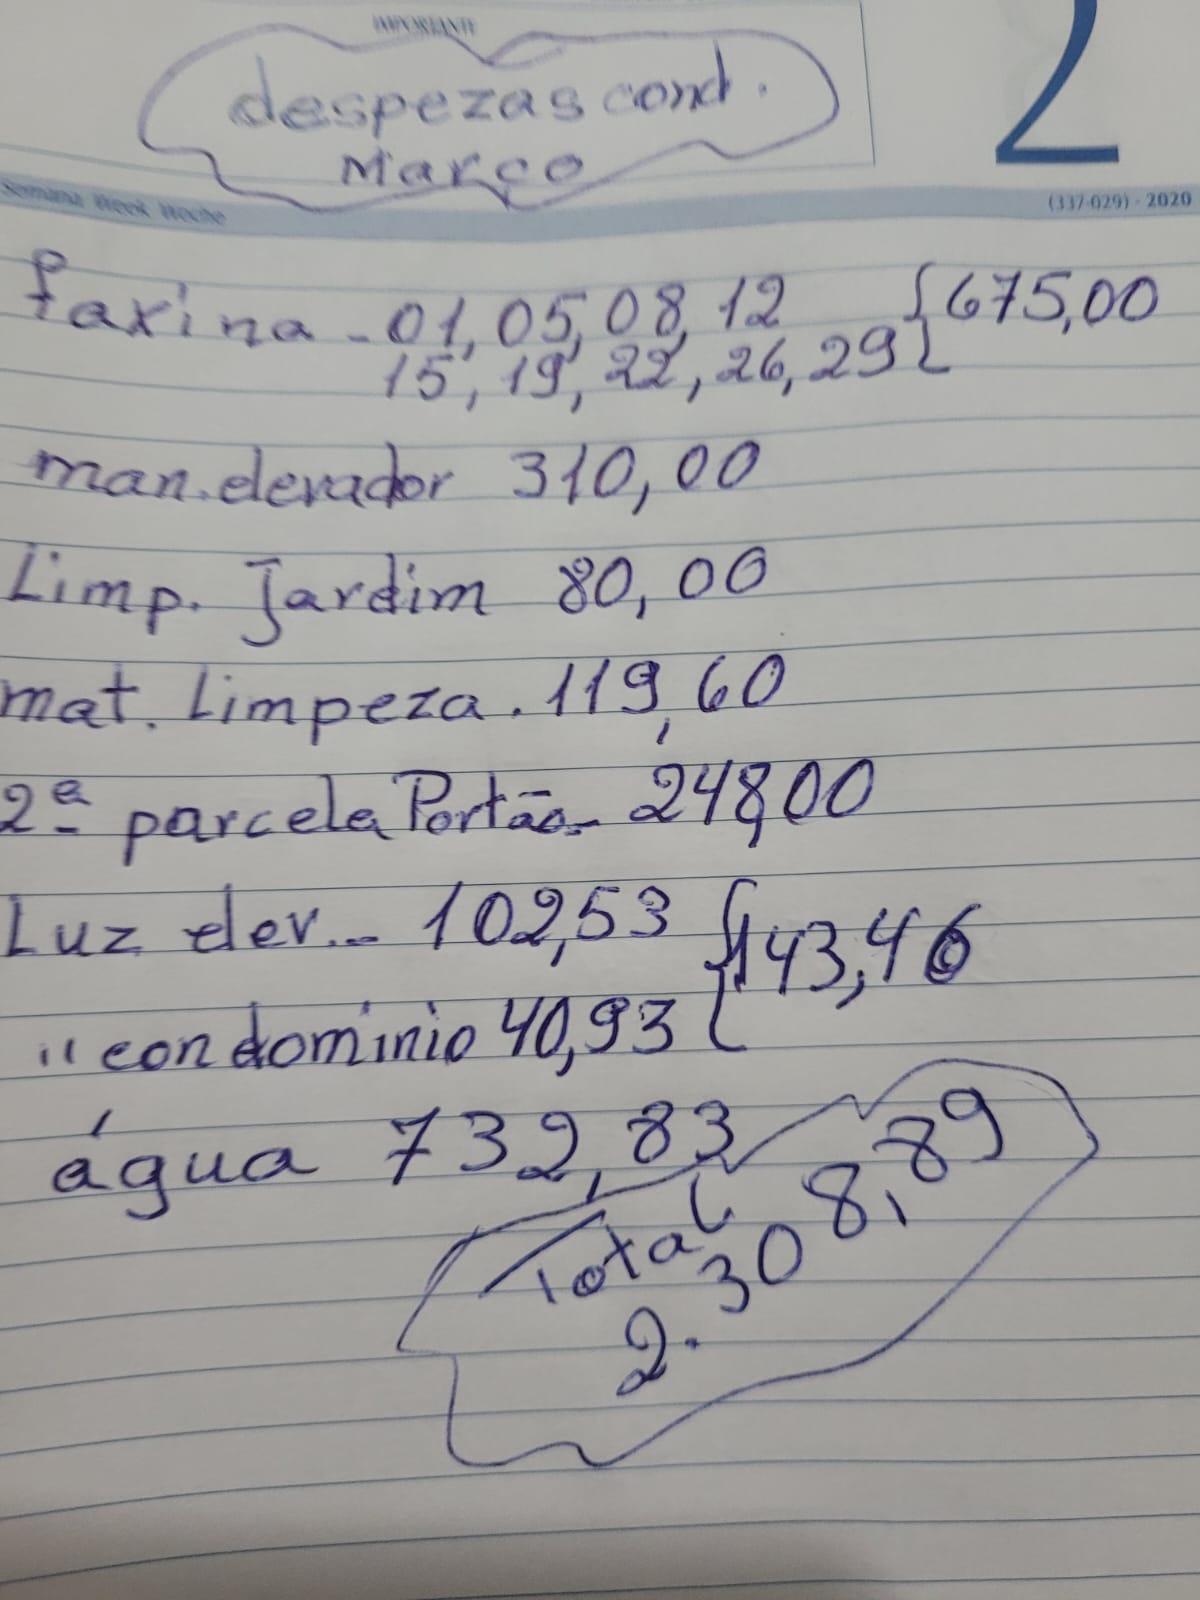 IMPORTANTE
despezas cond.
Março
2
Semana Week Woche
(337-029) - 2020
faxina - 01, 05, 08, 12 {675,00
15, 19, 22, 26, 29
man. elevador 310,00
Limp. Jardim 80,00
mat. Limpeza . 119,60
2ª parcela Portão - 248,00
Luz elev. - 102,53 {143,46
" condomínio 40,93
água 732,83
Total
2.308,89